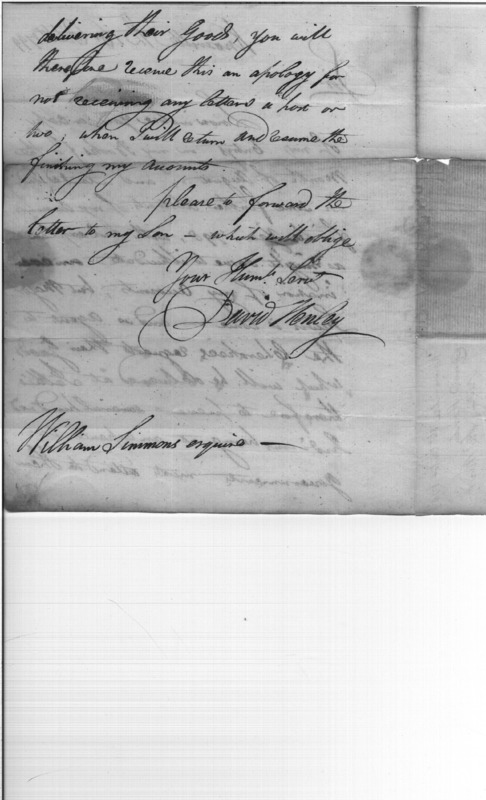 delivering their Goods, you will
therefore receive this an apology for
not receiving any letters a post or
two, when I will return and resume the
finishing my accounts.
please to forward the
letter to my Son — which will oblige
Your Humb. Servt
David Henley
William Simmons esquire —